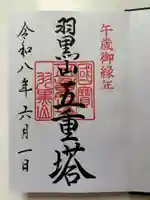 午歳御縁年
羽黒山五重塔
国宝
羽黒山
令和八年六月一日